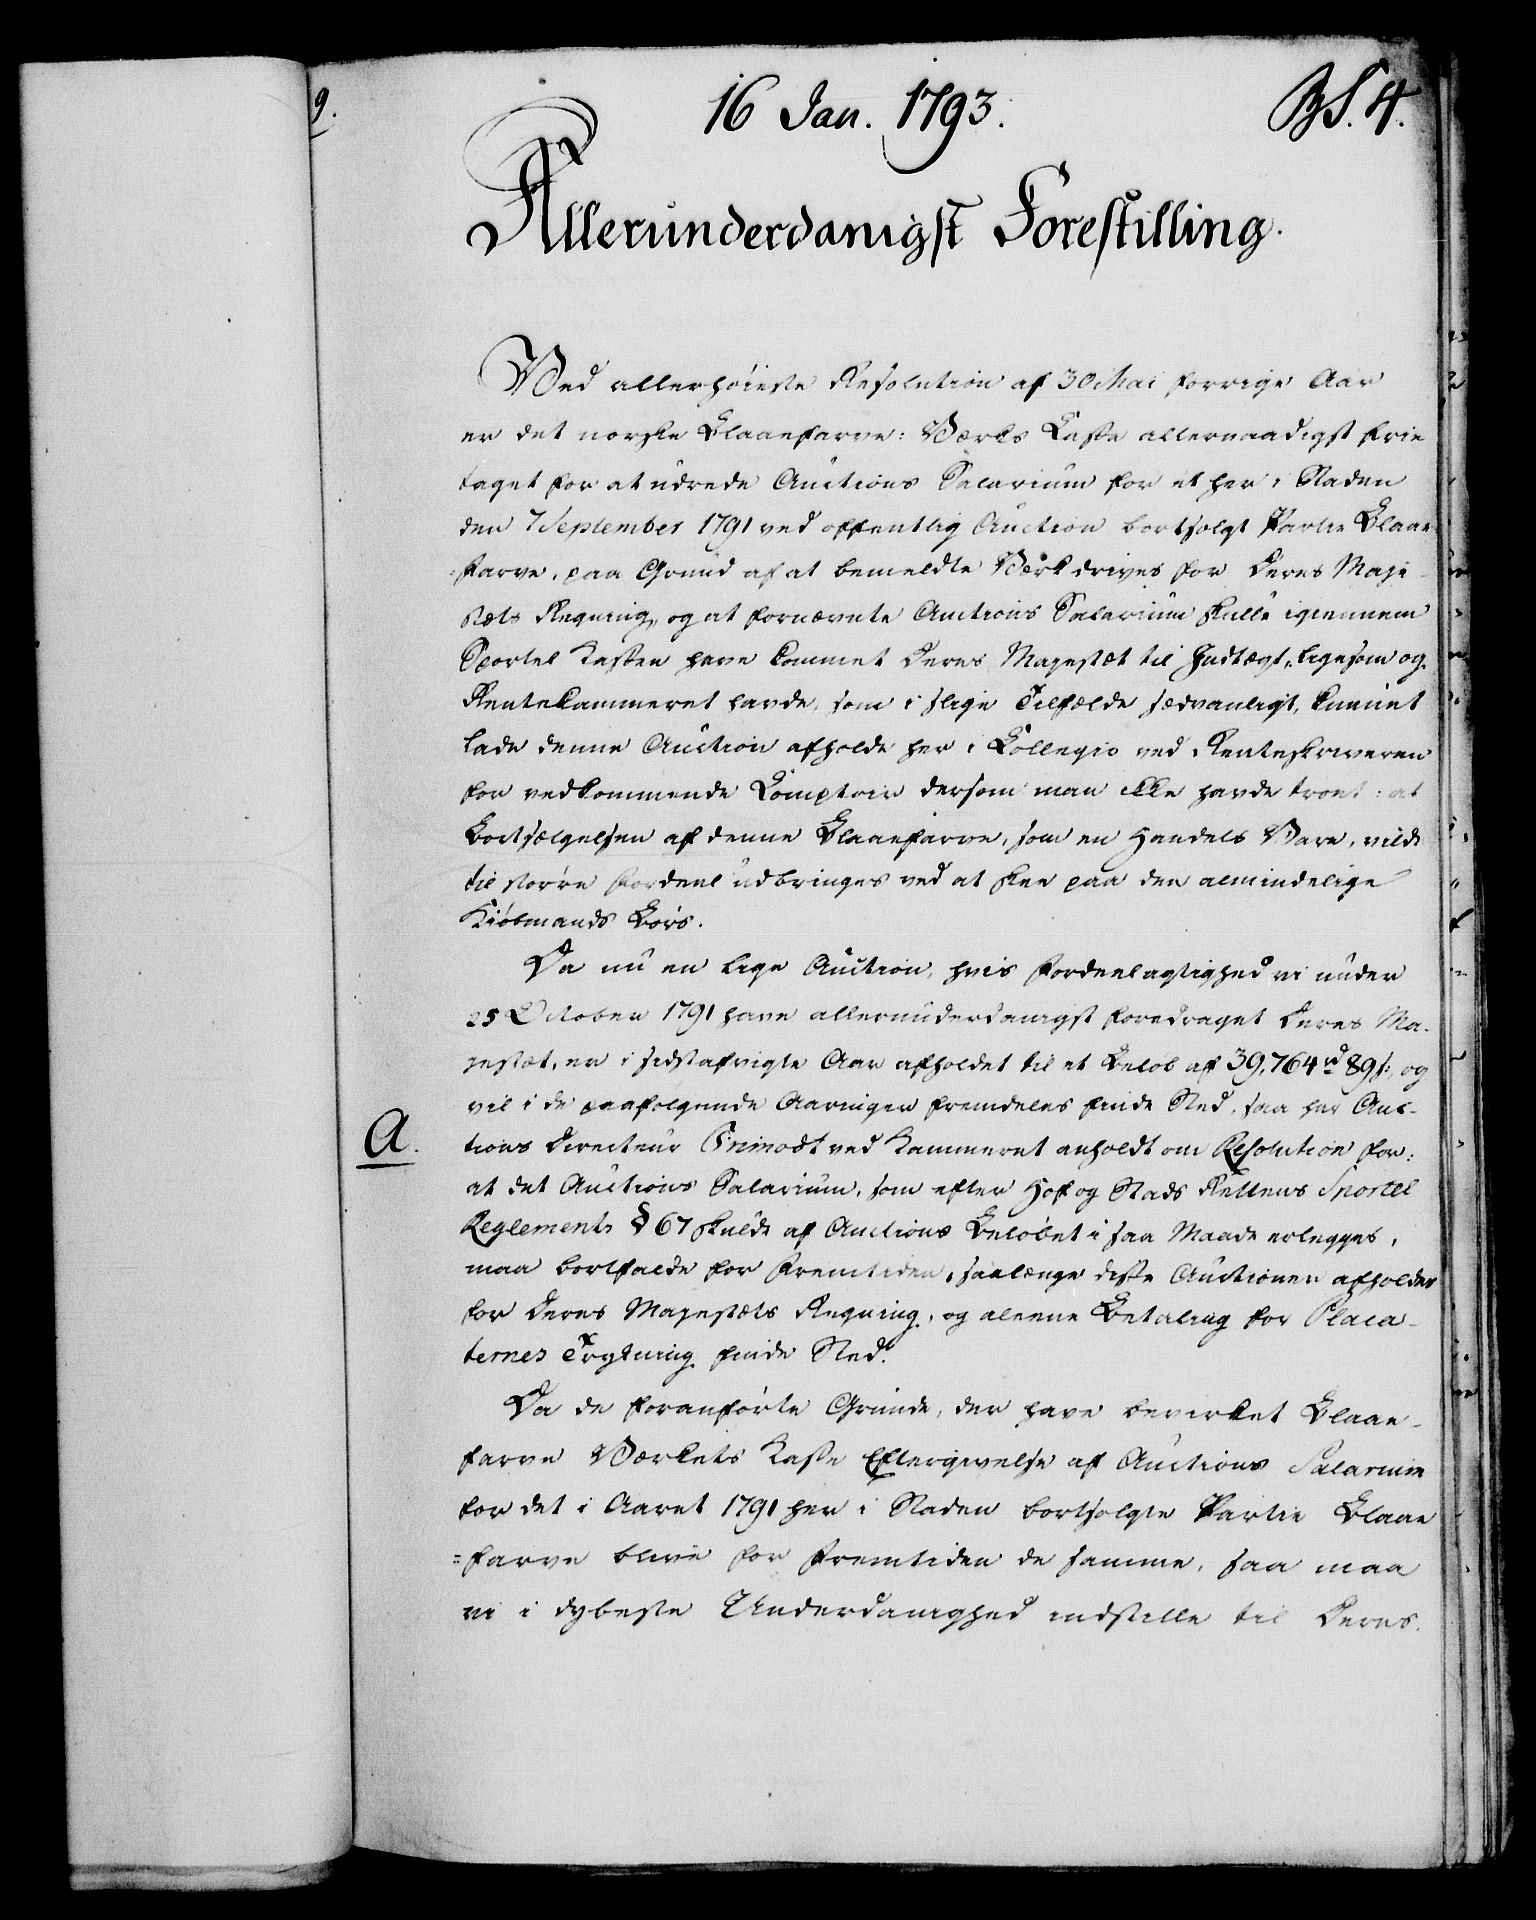 9.
16 Jan. 1793.
BS. 4.
Allerunderdanigst Forestilling.
Ved allerhøieste Resolution af 30 Mai forrige Aar
er det norske Blaaefarve-Værks Casse allernaadigst frie
taget for at udrede Auctions Salarium for et her i Staden
den 7 September 1791 ved offentlig Auction bortsolgt Partie Blaae-
farve, paa Grund af at bemeldte Værk drives for Deres Maje-
stæts Regning, og at fornævnte Auctions Salarium skulle igiennem
Sportel Kassen have kommet Deres Majestæt til Indtægt, ligesom og
Rentekammeret havde, som i slige Tilfælde sædvanligt, kunnet
lade denne Auction afholde her i Collegio ved Renteskriveren
for vedkommende Comptoir dersom man ikke havde troet: at
Bortsælgelsen af denne Blaaefarve, som en Handels Vare, vilde
til større Fordeel udbringes ved at skee paa den almindelige
Kiøbmands Børs.
Da nu en lige Auction, hvis Fordeelagtighed vi under
25 October 1791 have allerunderdanigst foredraget Deres Ma-
jestæt, er i sidstafvigte Aar afholdet til et Beløb af 39,764 rd 89 s:, og
vil i de paafølgende Aaringer fremdeles finde Sted, saa har Auc-
A.
tions Directeur ved Kammeret anholdt om Resolution for:
at det Auctions Salarium, som efter Hof og Stads Rettens Sportel
Reglements § 67 skulde af Auctions Beløbet i saa Maade erlegges,
maa bortfalde for Fremtiden, saalænge disse Auctioner afholdes
for Deres Majestæts Regning, og aleene Betaling for Placa-
ternes Trykning finde Sted.
Da de foranførte Grunde, der have bevirket Blaae-
farve Værkets Kasse Eftergivelse af Auctions Salarium
for det i Aaret 1791 her i Staden bortsolgte Partie Blaae
=farve blive for Fremtiden de samme, saa maa
vi i dybeste Underdanighed indstille til Deres